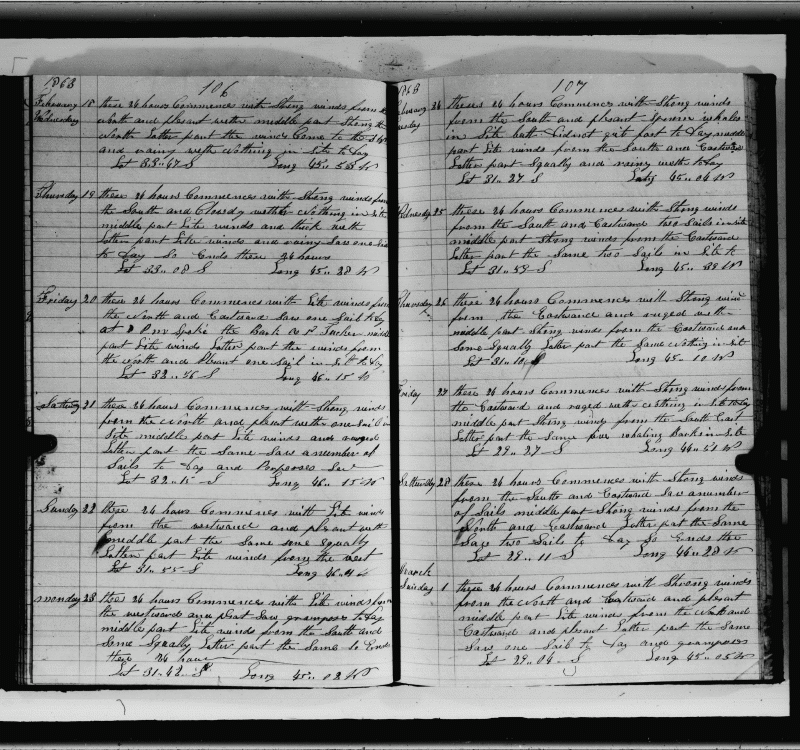 1863
106
February 18 these 24 hours Commences with Strong winds from the
Wednesday North and plesant wether middle part Strong the
North Latter part the winds Come to the
and rainy weth Nothing in Site to Day
Lat 33..47 S Long 45..53 W
Thursday 19 these 24 hours Commences with Strong winds from
the South and Cloudy wether Nothing in Site
middle part Lite winds and thick weth
latter part Lite winds and rainy Saw one Sail
to Day So Ends these 24 hours
Lat 33..08 S Long 45..28 W
Friday 20 these 24 hours Commences with Lite winds from
the North and Eastward Saw one Sail to Day
at PM Spoke the Bark Tucker middle
part Lite winds Latter part the winds from
the North and Plesant one Sail in Site to Day
Lat 32..46 S Long 46..15 W
Satturday 21 these 24 hours Commences with Strong winds
from the North and plesant weth one Sail in
Site middle part Lite winds and ruged
Latter part the Same Saw a number of
Sails to Day and Porposes Saw
Lat 32..15 S Long 46..15 W
Sunday 22 these 24 hours Commences with Lite winds
from the westward and plesant weth
middle part the Same some Squally
Latter part Lite winds from the west
Lat 31..55 S Long 46..
monday 23 these 24 hours Commences with Lite winds from
the westward and plesat Saw grampuses to Day
middle part Lite winds from the South and
Some Squally Latter part the Same So Ends
these 24 hours
Lat 31..42 S Long 45..02 W
1863
107
February 24 theses 24 hours Commences with Strong winds
uesday from the South and plesant Sperm whales
in Site but Did not git fast to Day middle
part Lite winds from the South and Eastward
Latter part Squally and rainy weth to Day
Lat 31..27 S Long 45..04 W
Wednesday 25 these 24 hours Commences with Strong winds
from the South and Eastward two Sails in Site
middle part Strong winds from the Eastward
Latter part the Same two Sails in Site to
Lat 31..59 S Long 45..38 W
Thursday 26 these 24 hours Commences with Strong wind
from the Eastward and ruged weth
middle part Strong winds from the Eastward and
Some Squally Latter part the Same Nothing in Site
Lat 31..10 S Long 45..10 W
Friday 27 these 24 hours Commences with Strong winds from
the Eastward and roged weth Nothing in Site to Day
middle part Strong winds from the South East
Latter part the Same four whaling Barks in Site
Lat 29..27 S Long 44..51 W
Satturday 28 these 24 hours Commences with Strong winds
from the South and Eastward Saw a number
of Sails middle part Strong winds from the
North and Eastward Latter part the Same
Saw two Sails to Day So Ends the
Lat 29..11 S Long 46..28 W
March
Sunday 1 these 24 hours Commences with Strong winds
from the North and Eastward and plesant
middle part Lite winds from the North and
Eastward and plesant Latter part the Same
Saw one Sail to Day and grampuses
Lat 29..04 S Long 45..05 W